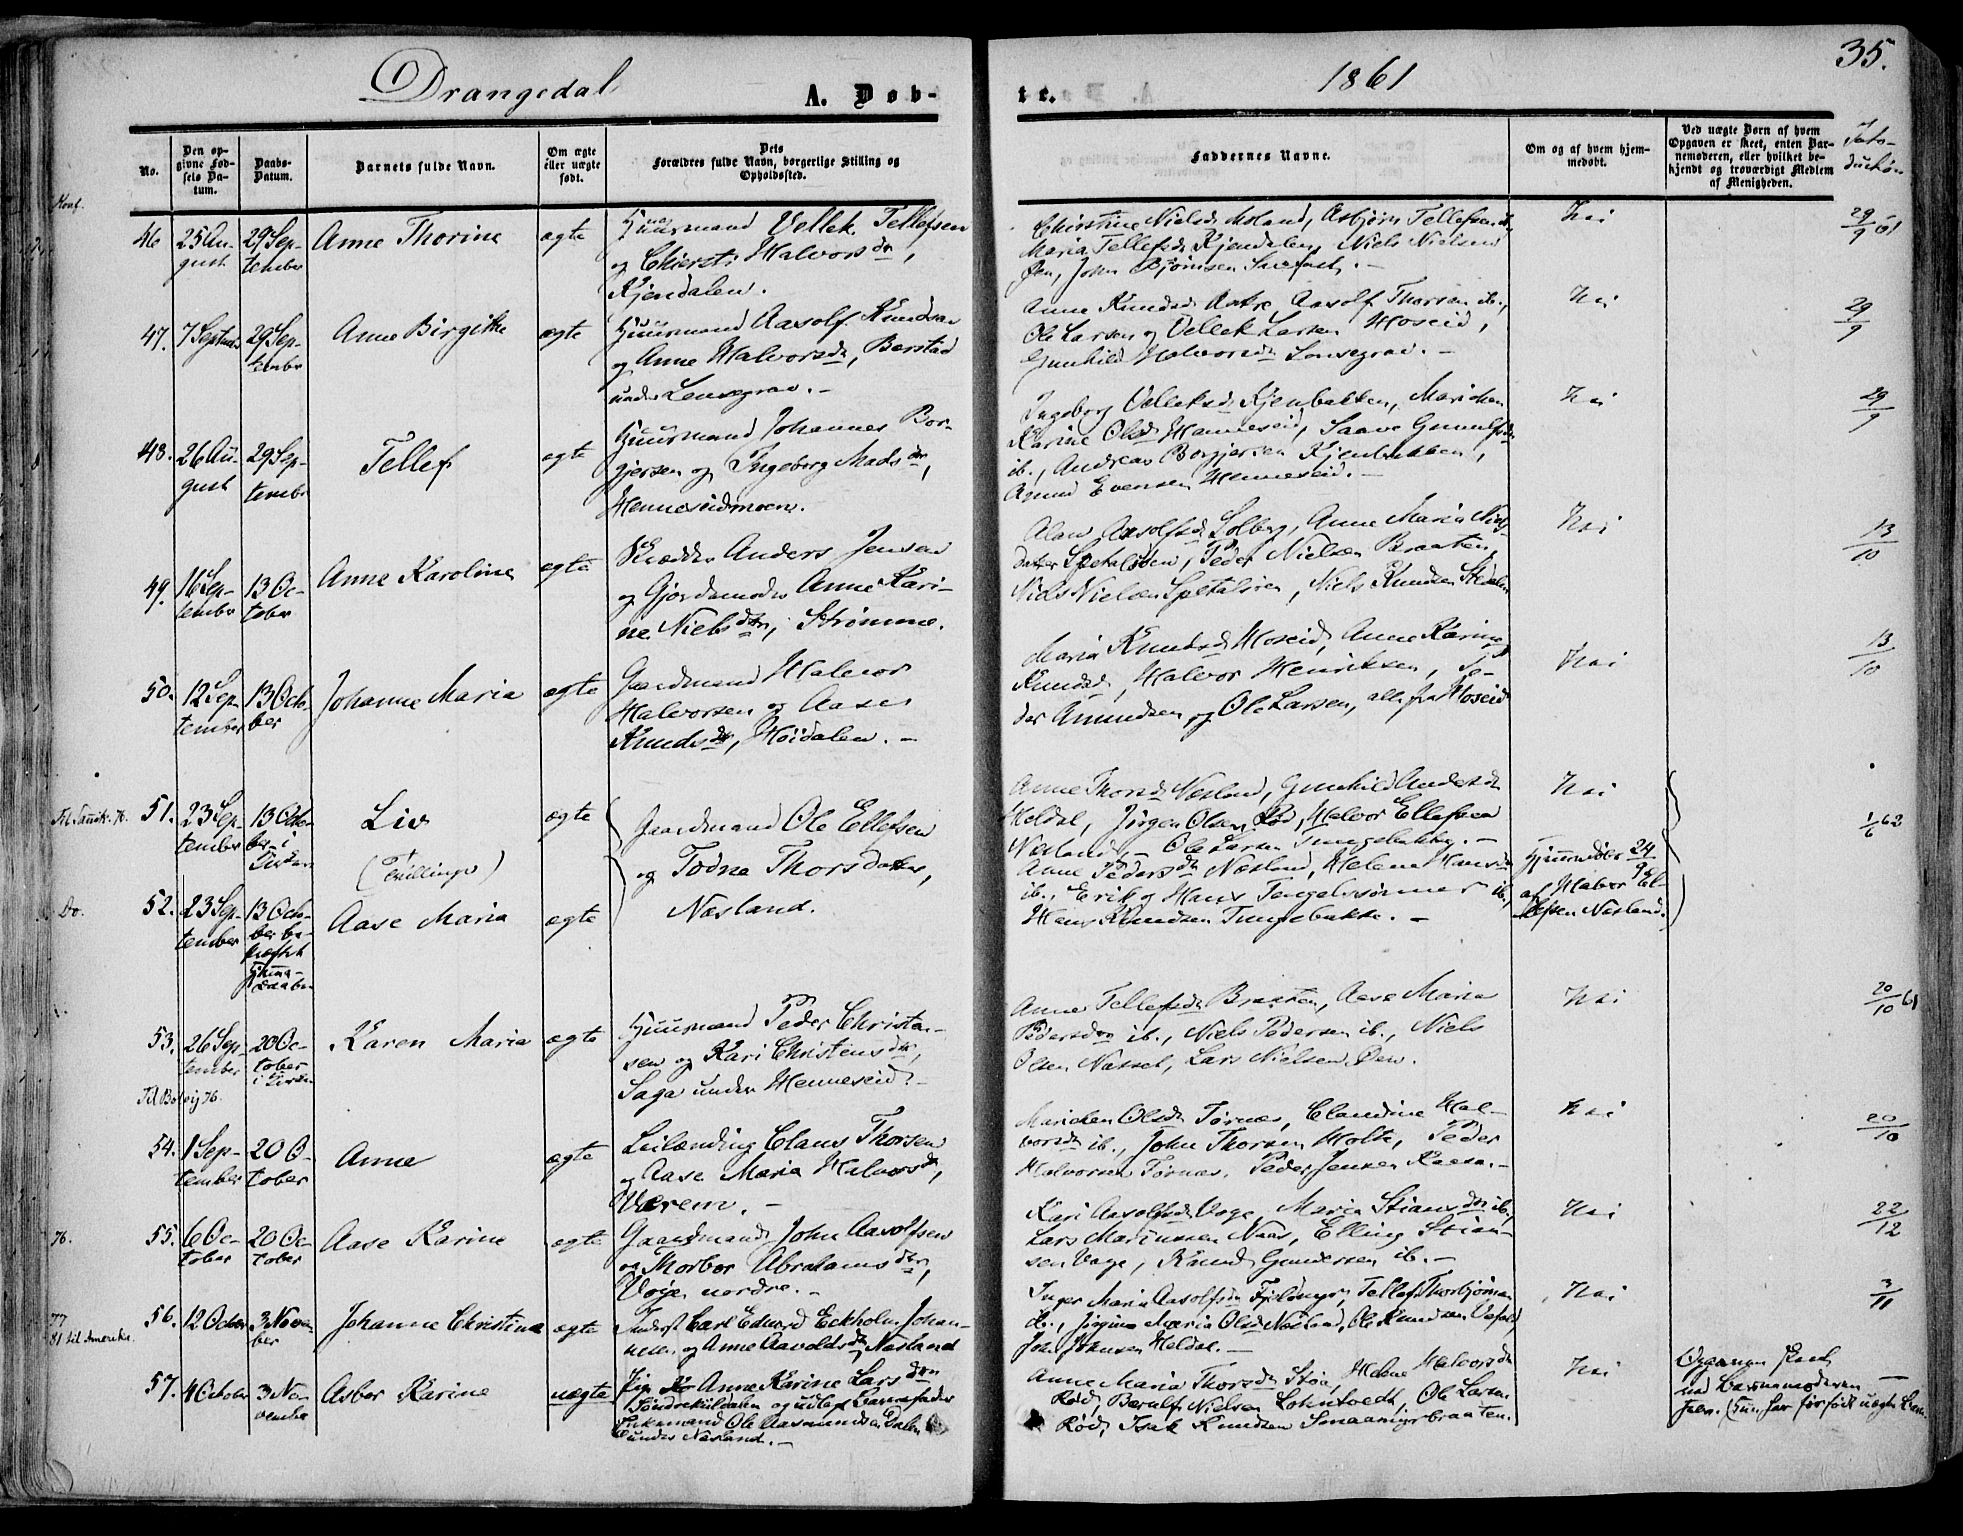 Drangedal
A. Døb-
te.
1861
35.
No.
Den op-
givne Fød-
sels Da-
tum.
Daabs-
Datum.
Barnets fulde Navn.
Om ægte
eller uægte
født.
Dets
Forældres fulde Navn, borgerlige Stilling og
Opholdssted.
Faddernes Navne.
Om og af hvem hjem-
medøbt.
Ved uægte Børn af hvem
Opgaven er skeet, enten Bar-
nemoderen, eller hvilket be-
kjendt og troværdigt Medlem
af Menigheden.
Konf.
46 25 Au-
gust
29 Sep-
tember
Anne Thorine
ægte
Huusmand Vellek Tellefsen
og Chiersti Halvorsdr,
Kjendalen.
Christine Nielsd Moland, Asbjørn Tellefsen ib,
Maria Tellefsd Kjendalen, Niels Nielsen
Øen, John Bjørnsen
Nei
29/9 61
47. 7 Septemb
29 Sep-
tember
Anne Birgitke
ægte
Huusmand Aasolf Knudsen
og Anne Halvorsd, Berstad
under Lensegrav.-
Anne Knudsd Aasolf Thorsen ib.,
Ole Larsen og Vellek Larsen Hoseid,
Gunhild Halvorsd Lonsegrav.-
Nei
29/9
48. 26 Au-
gust
29 Sep-
tember
Tellef
ægte
Huusmand Johannes Bor-
gjersen og Ingeborg Madsdr,
Henneseidmoen.
Ingeborg Velleksd Kjenbakken, Maricken
Karine Olsd Henneseid, Saave Gunulfsd
ib., Andreas Borgjersen Kjenbakken,
Amund Evensen Henneseid.-
Nei
29/9
49. 16 Sep-
tember
13 Oc-
tober
Anne Karoline
ægte
Skrædder Anders Jensen
og Gjordemoder Anne Kari-
ne Nielsdtr, Strømme.
Aasolfsd Solberg, Anne Maria Niels-
datter Spetalsøen, Peder Nielsen Braaten,
Niels Nielsen Spetalsøen, Niels Knudsen
Nei
13/10
50. 12 Sep-
tember
13 Octo-
ber
Johanne Maria
ægte
Gaardmand Halvor
Halvorsen og Aase
Knudsdr, Høidalen.-
Maria Knudsd Hoseid, Anne Karine
Knudsd, Halvor Henriksen, Pe-
der Amundsen og Ole Larsen, alle fra Hoseid
Nei
13/10
51. 23 Sep-
tember
13 Octo-
ber i
Kirken
Liv
(Tvillinge)
ægte
Gaardmand Ole Ellefsen
og Todne Thorsdatter,
Næsland.
Anne Thorsd Næsland, Gunhild Andersd
Heldal, Jørgen Olsen Rød, Halvor Ellefsen
Næsland.- Ole Larsen Tungebakke.-
Nei
1/6 62
52. 23 Sep-
tember
13 Octo-
ber be-
kræftet
Hjemme-
daaben
Do.
Aase Maria
ægte
Anne Pedersdr Næsland, Helene Hansd
ib., Erik og Hans Tengelssønner ib.,
Hans Knudsen Tungebakke.-
Hjemmedøbt 24/9
af Halvor El-
lefsen Næsland.
53. 26 Sep-
tember
20 Oc-
tober
i Kirken
Karen Maria
ægte
Huusmand Peder Christen-
sen og Kari Christensdr,
Saga under Henneseid.-
Anne Tellefsd Braaten, Aase Maria
Pedersdr ib., Niels Pedersen ib., Niels
Olsen Næsset, Lars Nielsen Øen.
Nei
20/10 61
54. 1 Sep-
tember
20 Oc-
tober
Anne
ægte
Leilænding Claus Thorsen
og Aase Maria Halvorsdr,
Værem.-
Maricken Olsd Tørnæs, Claudine Hal-
vorsd ib., John Thorsen Holte, Peder
Halvorsen Tørnæs, Peder Jensen
Nei
20/10
76.
55. 6 Oc-
tober
20 Oc-
tober
Aase Karine
ægte
Gaardmand John Aasolfsen
og Thorbor Abrahamsdtr,
Voje nordre.-
Kari Aasolfsd Voge, Maria Stiansdtr ib.,
Lars Marinussen Naas, Elling Stian-
sen Voge, Knud Gundersen ib.-
Nei
22/12
77
81 til Amerika
56. 12 Octob
3 Novem-
ber
Johanne Christine
ægte
Inderst Carl Edvard Eckholm Johan-
nesen og Anne Aavoldsdr, Næsland
Inger Maria Aasolfsd Tellef Thorbjørnsen
ib., Jørgine Maria Olsd Næsland, Ole Knudsen
John Johnsen Heldal.-
Nei
3/11
57. 4 October
3 No-
vember
Asbor Karine
uægte
Pige Anne Karine Larsdtr
og udlagt Barnefader
Ole Aasmundsen Dalen
under Næsland.-
Anne Maria Thorsd Støa, Helene Halvorsd
Rød, Beralf Nielsen Lohntvedt, Ole Larsen
Rød, Isak Knudsen Smaamyrbraaten.
Nei
Opgaven skeet
ved Barnemoderen